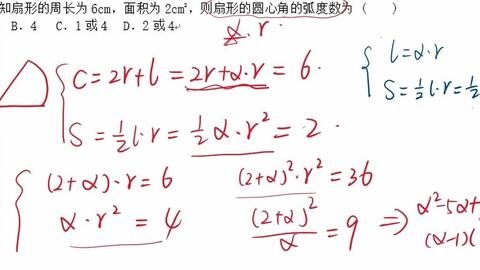 知扇形的周长为6cm，面积为2cm²，则扇形的圆心角的弧度数为 ( )
B. 4 C. 1或4 D. 2或4
α·r
C=2r+l=2r+α·r=6
S=½l·r=½α·r²=2
l=α·r
S=½l·r=½
(2+α)·r=6
α·r²=4
(2+α)²·r²=36
(2+α)²/α=9 ⇒ α²-5α+
(α-1)(